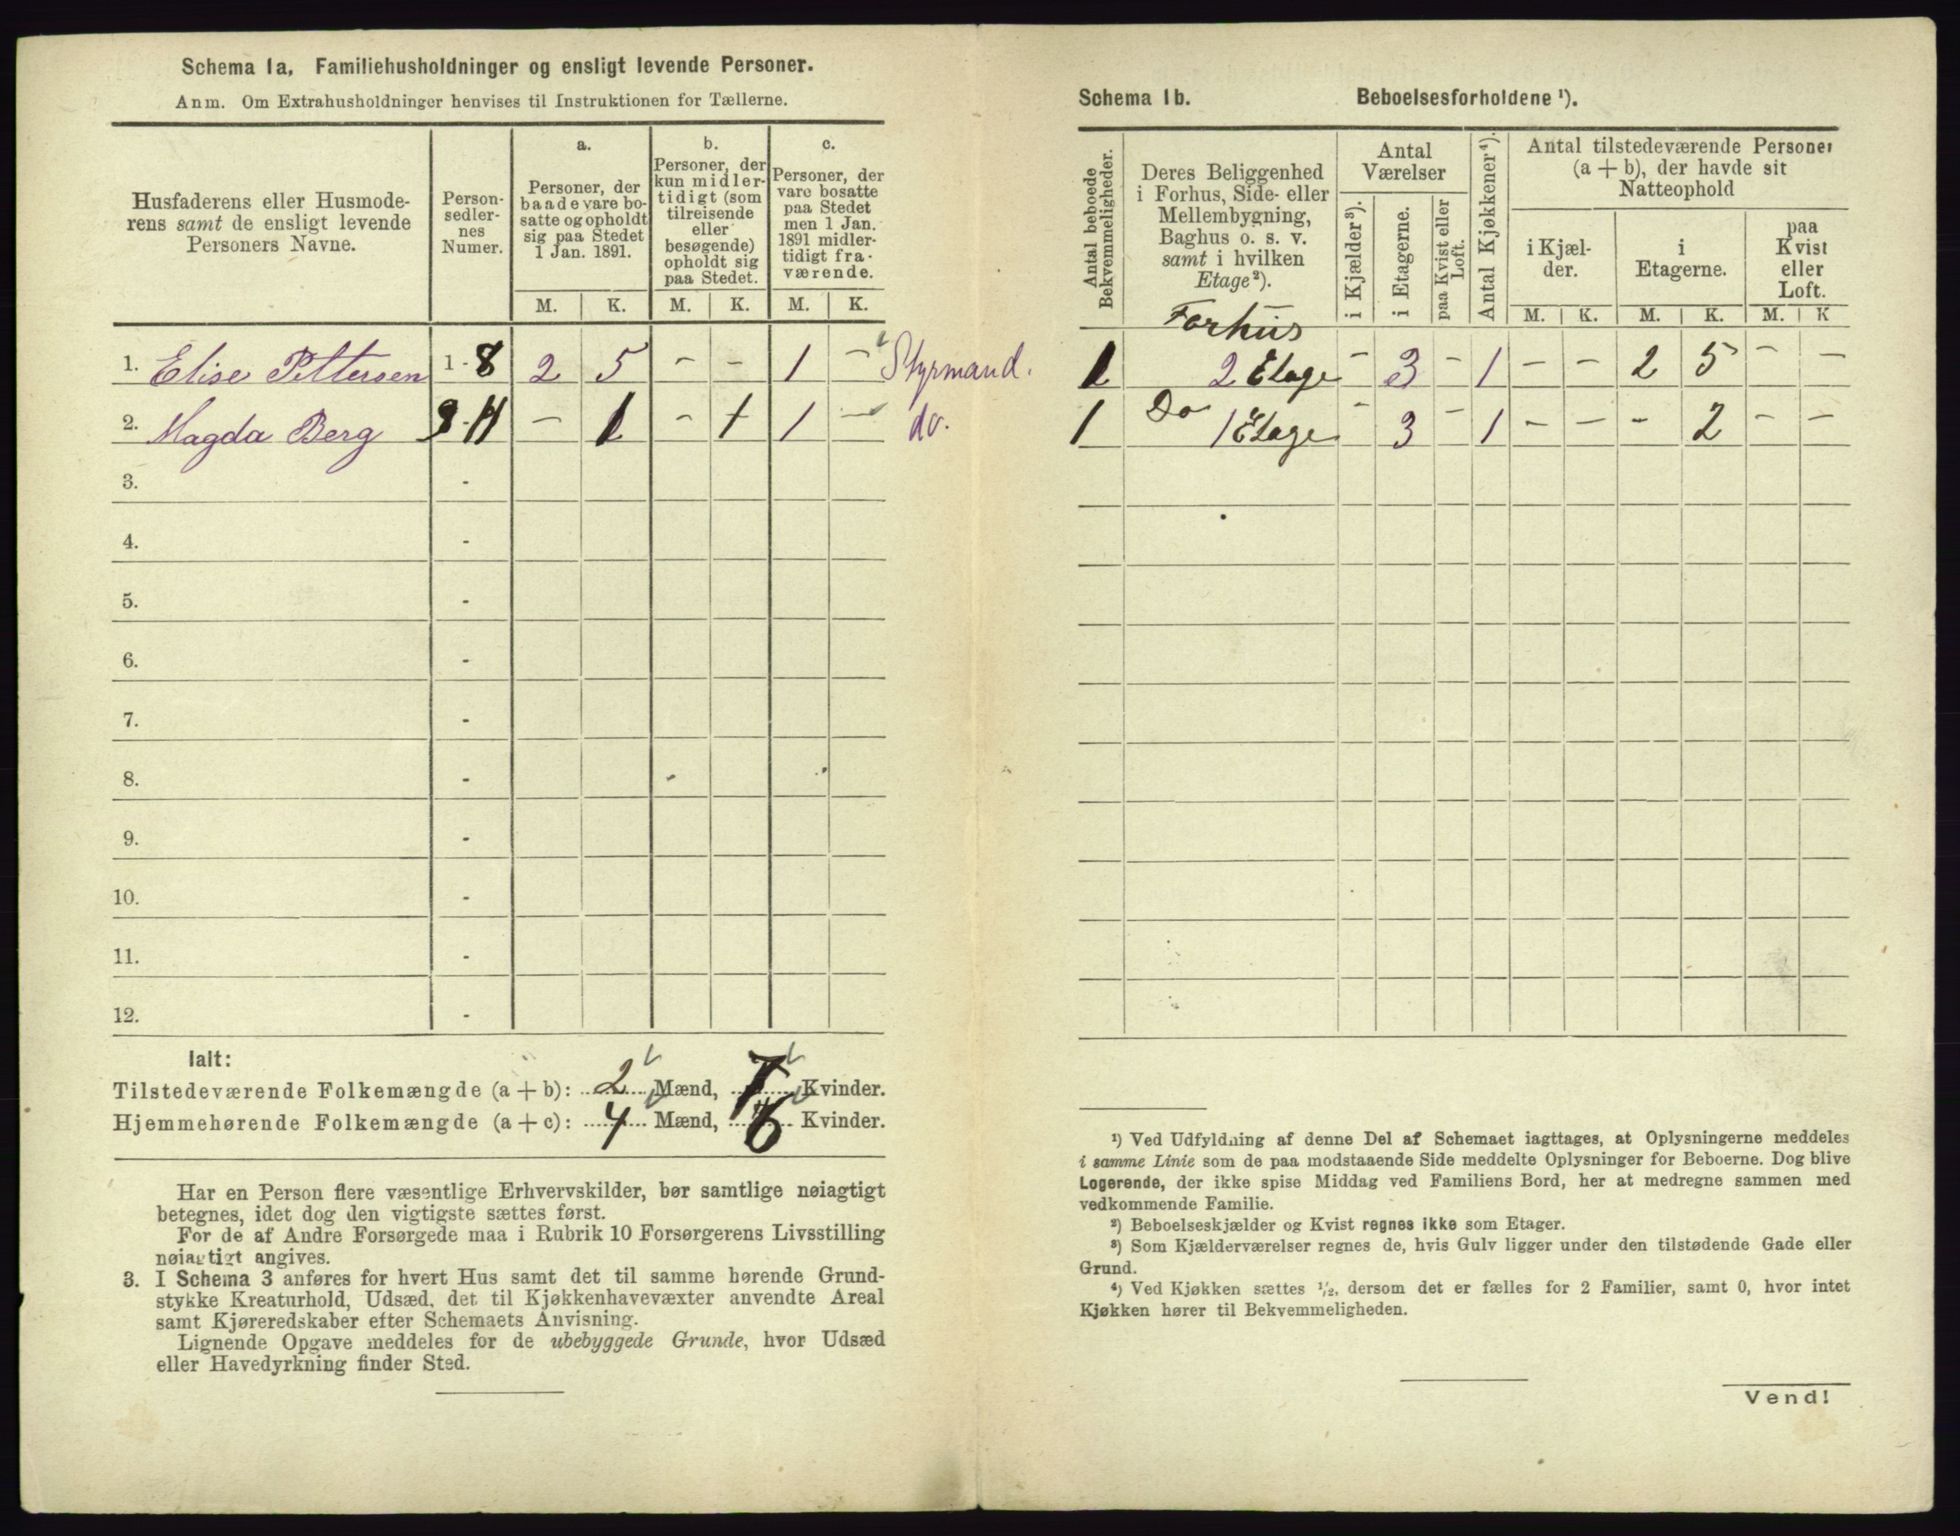 Schema 1a. Familiehusholdninger og ensligt levende Personer.
Anm. Om Extrahusholdninger henvises til Instruktionen for Tællerne.
Husfaderens eller Husmoderens samt de ensligt levende Personers Navne.
Personsedlernes Numer.
a.
Personer, der baade vare bosatte og opholdt sig paa Stedet 1 Jan. 1891.
b.
Personer, der kun midlertidigt (som tilreisende eller besøgende) opholdt sig paa Stedet.
c.
Personer, der vare bosatte paa Stedet men 1 Jan. 1891 midlertidigt fraværende.
M. K. M. K. M. K.
1. Elise Pettersen 1-8 2 5 - - 1 - Styrmand.
2. Magda Berg - 1 - 1 1 - do.
3. -
4. -
5. -
6. -
7. -
8. -
9. -
10. -
11. -
12. -
Ialt:
Tilstedeværende Folkemængde (a + b): 2 Mænd, 7 Kvinder.
Hjemmehørende Folkemængde (a + c): 4 Mænd, 6 Kvinder.
Har en Person flere væsentlige Erhvervskilder, bør samtlige nøiagtigt
betegnes, idet dog den vigtigste sættes først.
For de af Andre Forsørgede maa i Rubrik 10 Forsørgerens Livsstilling
nøiagtigt angives.
3. I Schema 3 anføres for hvert Hus samt det til samme hørende Grund-
stykke Kreaturhold, Udsæd, det til Kjøkkenhavevæxter anvendte Areal
samt Kjøreredskaber efter Schemaets Anvisning.
Lignende Opgave meddeles for de ubebyggede Grunde, hvor Udsæd
eller Havedyrkning finder Sted.
Schema 1b. Beboelsesforholdene ¹).
Antal beboede Bekvemmeligheder.
Deres Beliggenhed i Forhus, Side- eller Mellembygning, Baghus o. s. v. samt i hvilken Etage²).
Antal Værelser
i Kjælder³).
i Etagerne.
paa Kvist eller Loft.
Antal Kjøkkener⁴).
Antal tilstedeværende Personer (a + b), der havde sit Natteophold
i Kjælder.
i Etagerne.
paa Kvist eller Loft.
M. K. M. K. M. K
Forhus
1 2 Etage - 3 - 1 - - 2 5 - -
1 Do 1 Etage - 3 - 1 - - - 2 - -
¹) Ved Udfyldning af denne Del af Schemaet iagttages, at Oplysningerne meddeles
i samme Linie som de paa modstaaende Side meddelte Oplysninger for Beboerne. Dog blive
Logerende, der ikke spise Middag ved Familiens Bord, her at medregne sammen med
vedkommende Familie.
²) Beboelseskjælder og Kvist regnes ikke som Etager.
³) Som Kjælderværelser regnes de, hvis Gulv ligger under den tilstødende Gade eller
Grund.
⁴) Ved Kjøkken sættes ½, dersom det er fælles for 2 Familier, samt 0, hvor intet
Kjøkken hører til Bekvemmeligheden.
Vend!